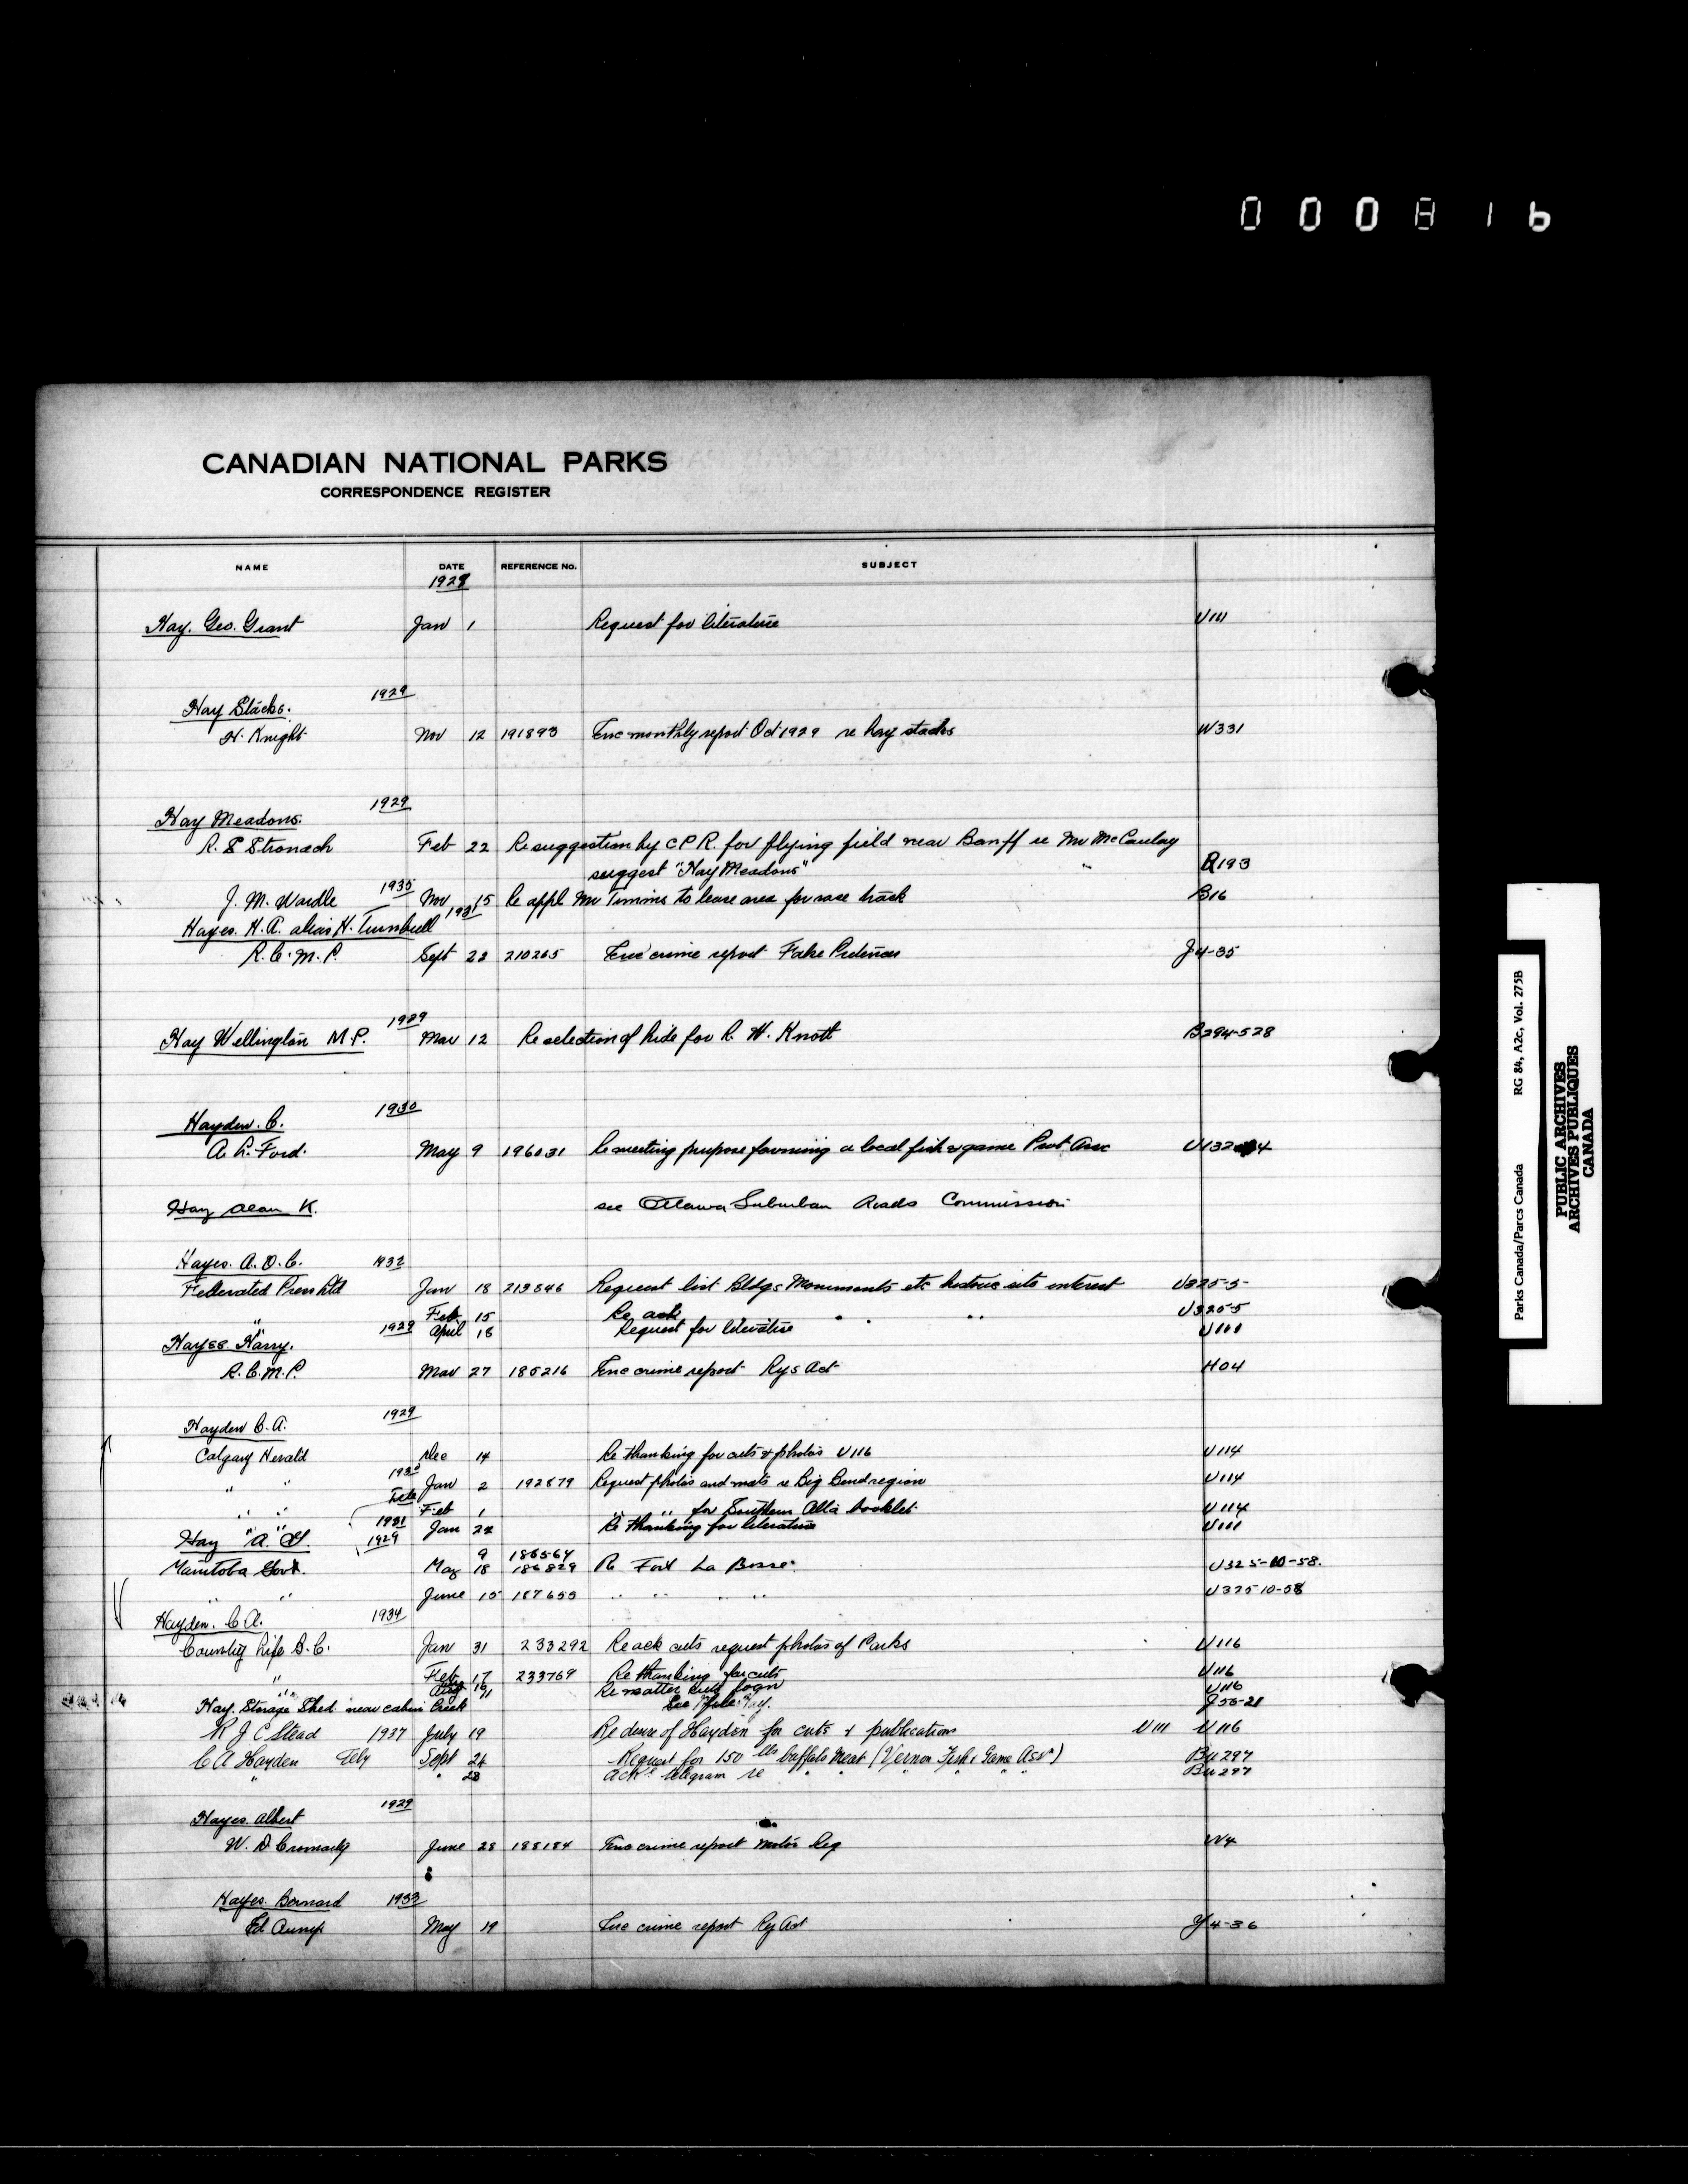 000816
CANADIAN NATIONAL PARKS
CORRESPONDENCE REGISTER
NAME DATE REFERENCE No. SUBJECT
1929
Hay. Geo. Grant Jan 1 Request for literature U111
Hay Stacks. 1929
H. Knight Nov 12 191893 Enc monthly report Oct 1929 re hay stacks W331
Hay Meadows. 1929
R. S Stronach Feb 22 Re suggestion by C P R. for flying field near Banff re Mr McCaulay
suggest "Hay Meadows" " R193
J. M. Wardle 1935 Nov 15 Re appl Mr Timmis to lease area for race track B16
Hayes. H. A. alias H. Turnbull 1931
R.C.M.P. Sept 22 210265 Enc crime report False Pretences J4-35
Hay Wellington M.P. 1929 Mar 12 Re selection of hide for R. W. Knott B294-528
Hayden. C. 1930
A. L. Ford. May 9 196031 Re meeting purpose forming a local fish & game Prot Assc U132 4
Hay Alan K. see Ottawa Suburban Roads Commission
Hayes. A. O. C. 1932
Federated Press Ltd Jan 18 213546 Request list Bldgs Monuments etc historic site interest U325-5-
" Feb 15 Re ack " " " U325-5
1929 April 18 Request for literature U111
Hayes. Harry.
R.C.M.P. Mar 27 185216 Enc crime report Rys Act H04
Hayden C. A. 1929
Calgary Herald Dec 14 Re thanking for cuts & photos U116 U114
" " 1930 Jan 2 192879 Request photos and mats re Big Bend region U114
" " Feb 1 " " for Southern Alta booklet U114
" " 1931 Jan 22 Re thanking for literature U111
Hay A. G. 1929
9 186564
Manitoba Govt. May 18 186829 Re Fort La Bosse. U325-10-58.
" " June 15 187655 " " " " U325 10-58
Hayden. C. A. 1934
Country Life B.C. Jan 31 233292 Re ack cuts request photos of Parks U116
" Feb 17 233769 Re thanking for cuts U116
" " 16 Re matter cuts U116
Hay. Storage Shed near cabin Creek 11 See J56-21
R J C Stead 1937 July 19 Re desire of Hayden for cuts & publications U111 U116
C A Hayden Sept 24 Request for 150 lbs buffalo Meat (Vernon Fish & Game Assn) Bu297
" " 28 Ack telegram re " " " " " Bu297
Hayes. Albert 1929
W. D Cromarty June 28 188184 Enc crime report Motor Reg W4
Hayes. Bernard 1933
May 19 Enc crime report Ry Act J4-36
Parks Canada/Parcs Canada RG 84, A2c, Vol. 275B
PUBLIC ARCHIVES
ARCHIVES PUBLIQUES
CANADA